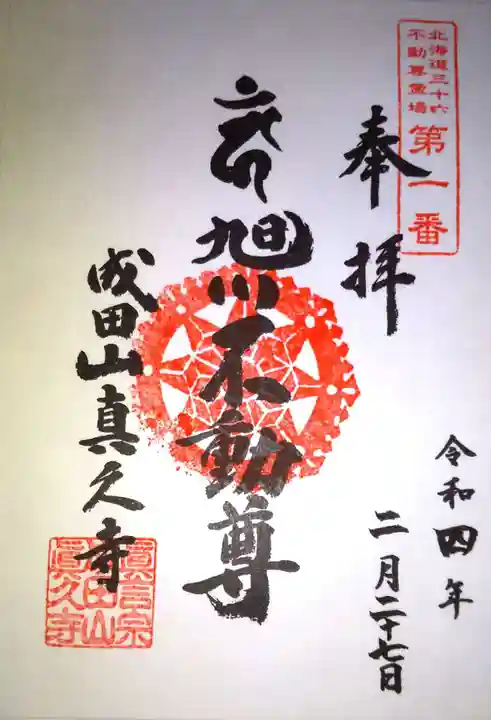 北海道三十六
不動尊霊場
第一番
奉拝
令和四年
二月二十七日
旭川不動尊
成田山真久寺
真言宗
成田山
眞久寺